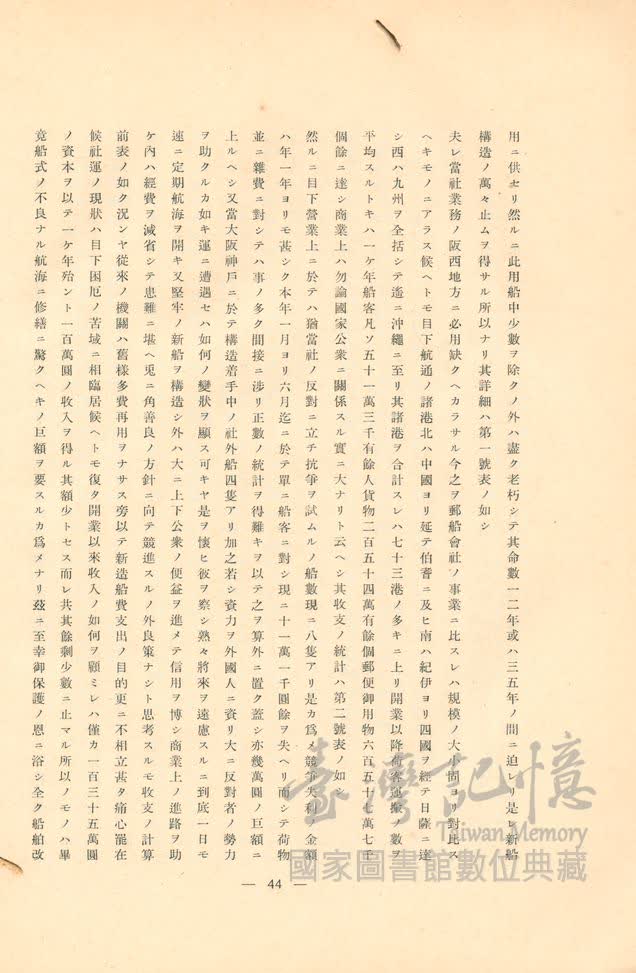 用ニ供セリ然ルニ此用船中少數ヲ除クノ外ハ盡ク老朽シテ其命數一二年或ハ三五年ノ間ニ迫レリ是レ新船
構造ノ萬々止ムヲ得サル所以ナリ其詳細ハ第一號表ノ如シ
夫レ當社業務ノ阪西地方ニ必用缺クヘカラサル今之ヲ郵船會社ノ事業ニ比スレハ規模ノ大小固ヨリ對比ス
ヘキモノニアラス候ヘトモ目下航通ノ諸港北ハ中國ヨリ延テ伯耆ニ及ヒ南ハ紀伊ヨリ四國ヲ經テ日薩ニ達
シ西ハ九州ヲ全括シテ遙ニ沖繩ニ至リ其諸港ヲ合計スレハ七十三港ノ多キニ上リ開業以降荷客運搬ノ數ヲ
平均スルトキハ一ケ年船客凡ソ五十一萬三千有餘人貨物二百五十四萬有餘個郵便御用物六百五十七萬七千
個餘ニ達シ商業上ハ勿論國家公衆ニ關係スル實ニ大ナリト云ヘシ其收支ノ統計ハ第二號表ノ如シ
然ルニ目下營業上ニ於テハ猶當社ノ反對ニ立チ抗爭ヲ試ムルノ船數現ニ八隻アリ是カ爲メ競爭失利ノ金額
ハ年一年ヨリモ甚シク本年一月ヨリ六月迄ニ於テ單ニ船客ニ對シ現ニ十一萬一千圓餘ヲ失ヘリ而シテ荷物
並ニ雜費ニ對シテハ事ノ多ク間接ニ涉リ正數ノ統計ヲ得難キヲ以テ之ヲ算外ニ置ク蓋シ亦幾萬圓ノ巨額ニ
上ルヘシ又當大阪神戶ニ於テ構造着手中ノ社外船四隻アリ加之若シ資力ヲ外國人ニ資リ大ニ反對者ノ勢力
ヲ助クルカ如キ運ニ遭遇セハ如何ノ變狀ヲ顯ス可キヤ是ヲ懷ヒ彼ヲ察シ熟々將來ヲ遠慮スルニ到底一日モ
速ニ定期航海ヲ開キ又堅牢ノ新船ヲ構造シ外ハ大ニ上下公衆ノ便益ヲ進メテ信用ヲ博シ商業上ノ進路ヲ助
ケ內ハ經費ヲ減省シテ患難ニ堪ヘ兎ニ角善良ノ方針ニ向テ競進スルノ外良策ナシト思考スルモ收支ノ計算
前表ノ如ク況ンヤ從來ノ機關ハ舊樣多費再用ヲナサス旁以テ新造船費支出ノ目的更ニ不相立甚タ痛心罷在
候社運ノ現狀ハ目下困厄ノ苦域ニ相臨居候ヘトモ復タ開業以來收入ノ如何ヲ顧ミレハ僅カ一百三十五萬圓
ノ資本ヲ以テ一ケ年殆ント一百萬圓ノ收入ヲ得ル其額少トセス而レ共其餘剩少數ニ止マル所以ノモノハ畢
竟船式ノ不良ナル航海ニ修繕ニ驚クヘキノ巨額ヲ要スルカ爲メナリ玆ニ至幸御保護ノ恩ニ浴シ全ク船舶改
— 44 —
臺灣記憶
Taiwan Memory
國家圖書館數位典藏